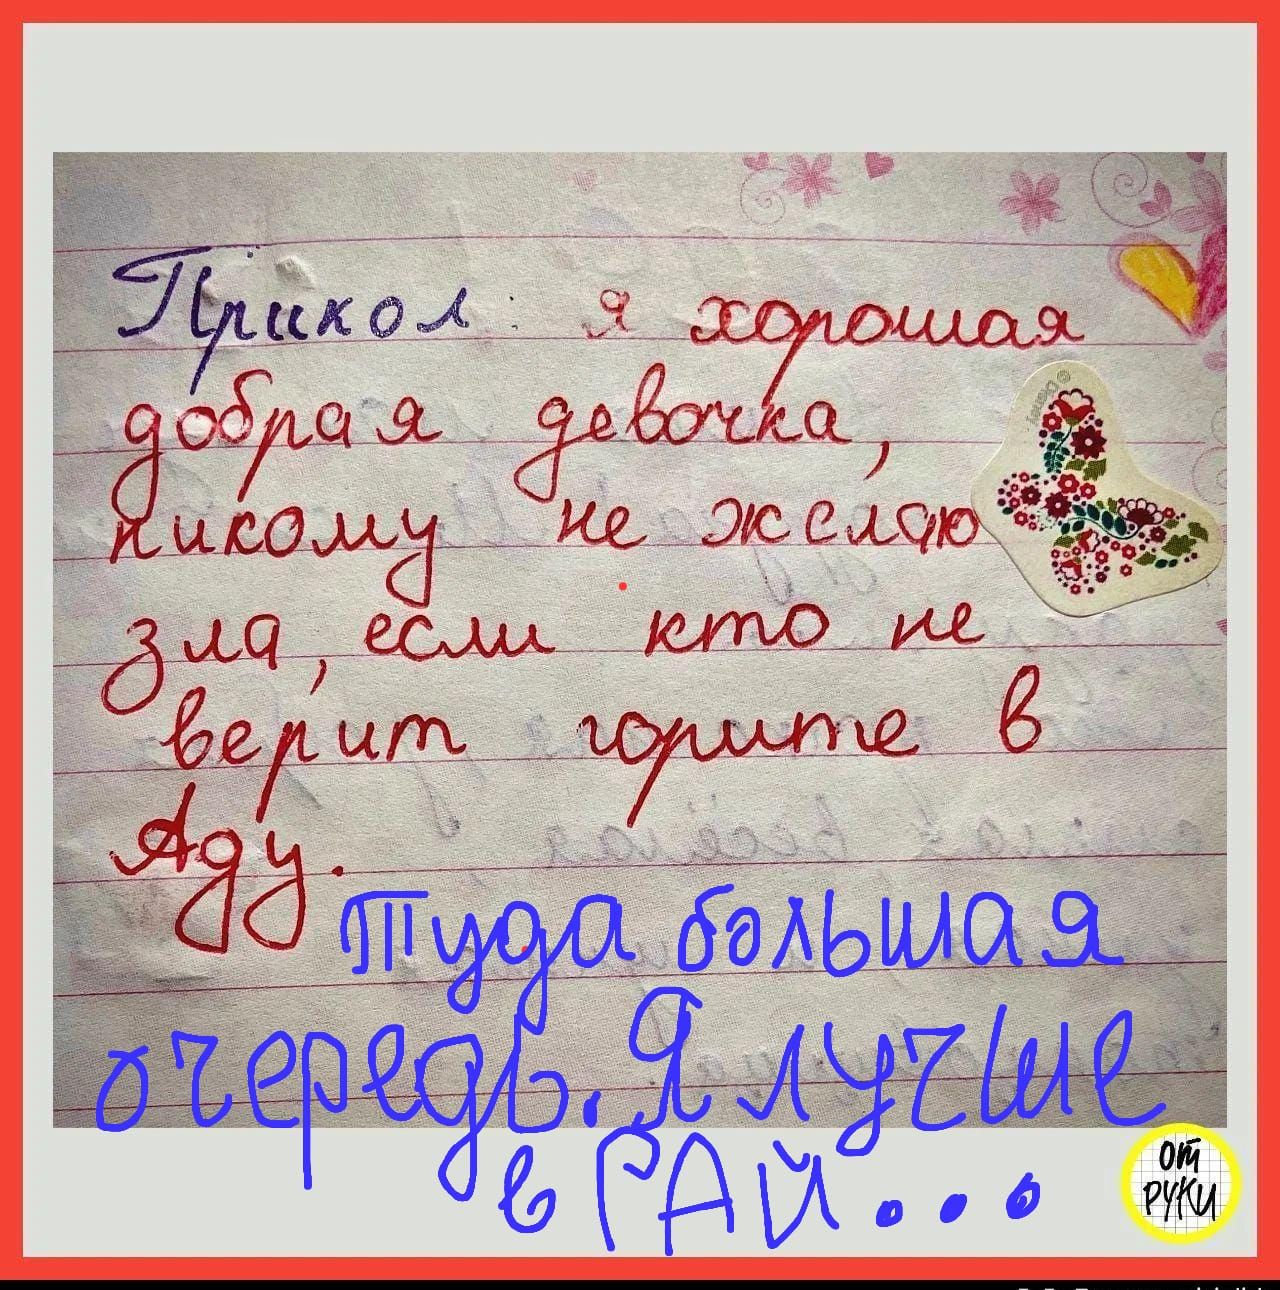 Прикол: я хорошая
добрая девочка,
никому не желаю
зла, если кто не
верит горите в
Аду.
Туда большая
очередь. Я лучше
в РАЙ...
ОТ
РУКИ